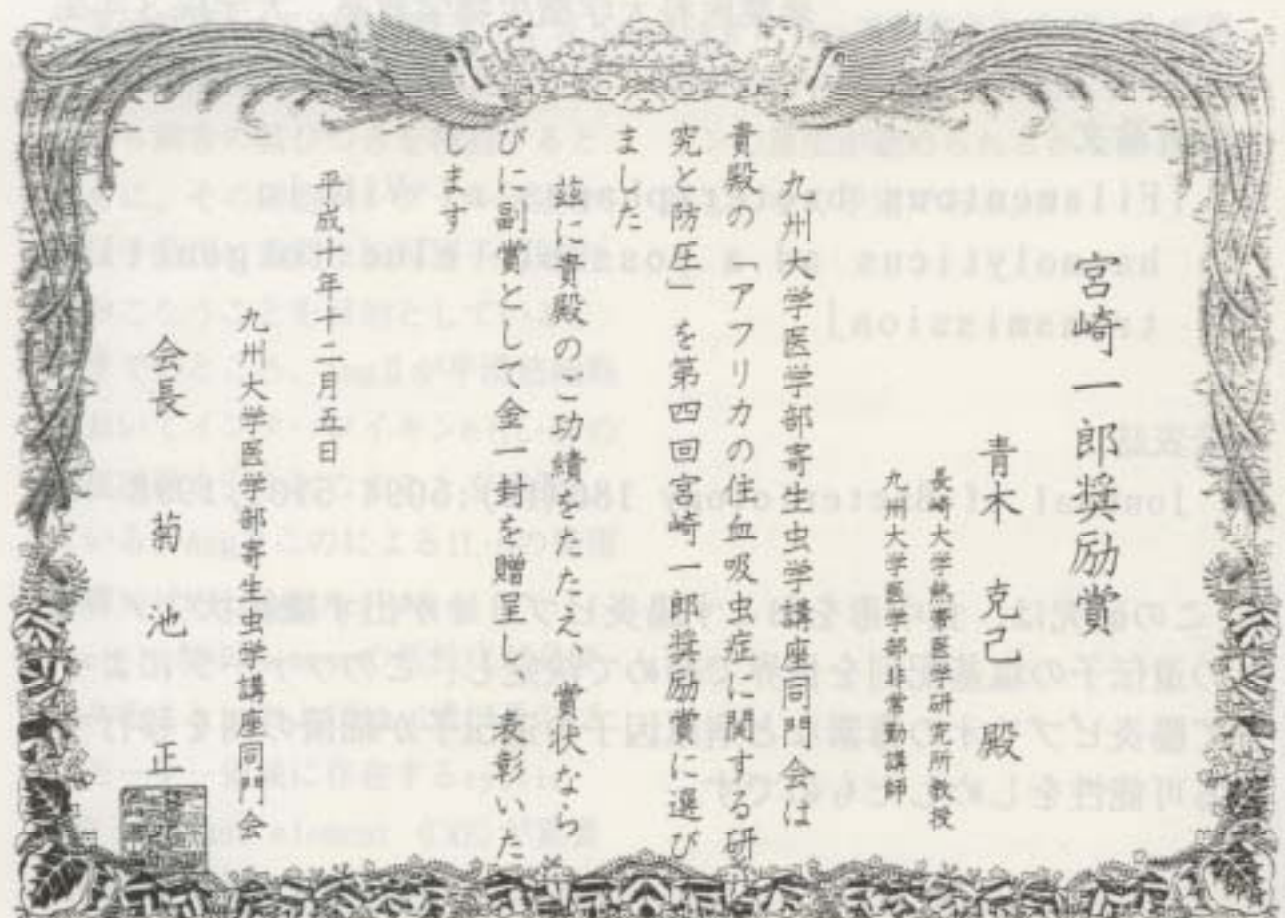 宮崎一郎奨励賞
青木 克己 殿
長崎大学熱帯医学研究所教授
九州大学医学部非常勤講師
九州大学医学部寄生虫学講座同門会は
貴殿の「アフリカの住血吸虫症に関する研
究と防圧」を第四回宮崎一郎奨励賞に選び
ました
茲に貴殿のご功績をたたえ、賞状なら
びに副賞として金一封を贈呈し、表彰いた
します
平成十年十二月五日
九州大学医学部寄生虫学講座同門会
会長 菊池 正